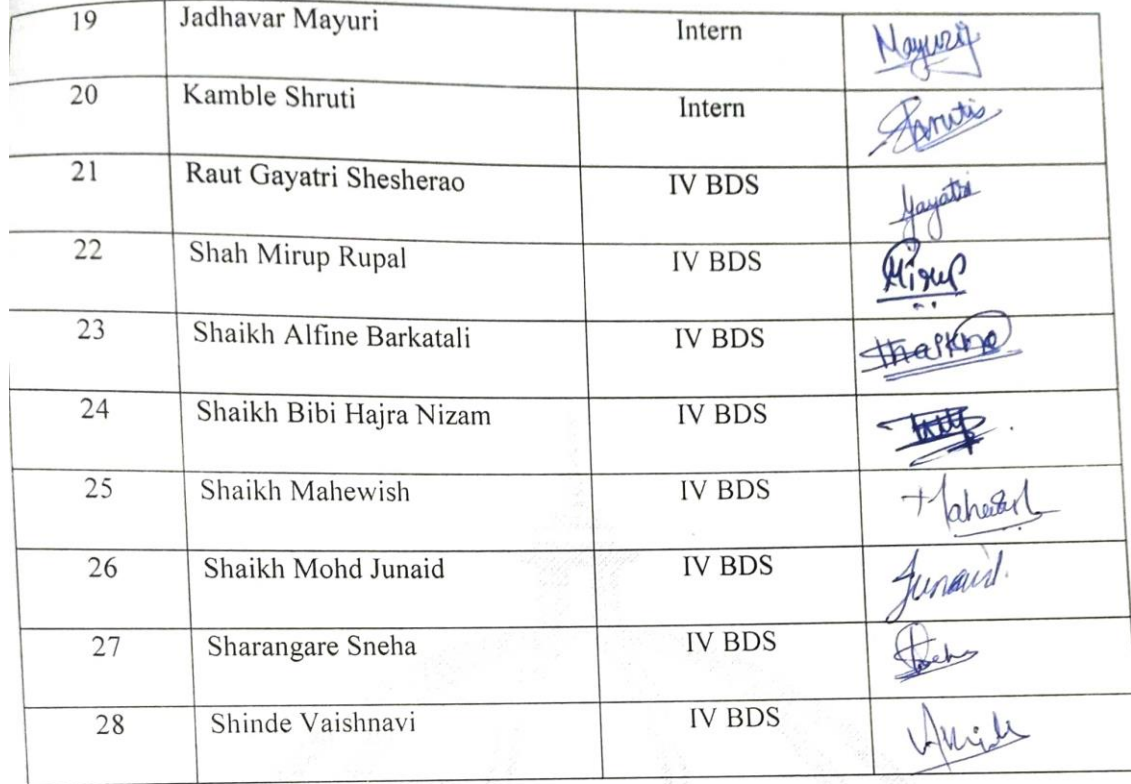 19 Jadhavar Mayuri Intern Mayurij
20 Kamble Shruti Intern Shrutis
21 Raut Gayatri Shesherao IV BDS Gayatri
22 Shah Mirup Rupal IV BDS Mirup
23 Shaikh Alfine Barkatali IV BDS
24 Shaikh Bibi Hajra Nizam IV BDS
25 Shaikh Mahewish IV BDS
26 Shaikh Mohd Junaid IV BDS Junaid.
27 Sharangare Sneha IV BDS
28 Shinde Vaishnavi IV BDS